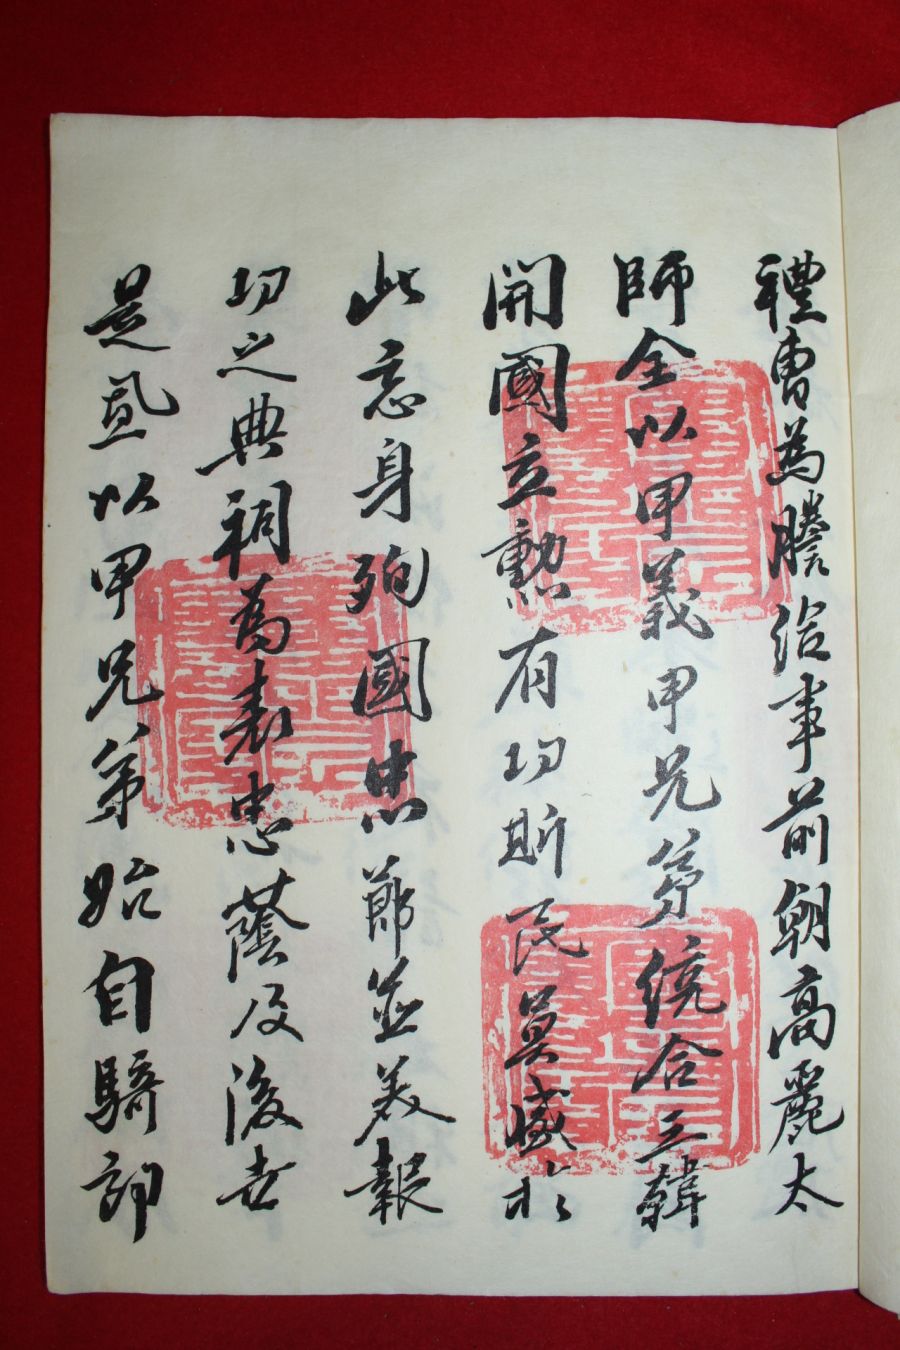 禮曹為謄給事前朝高麗太
師全以甲義甲兄弟統合三韓
開國立勳有功斯民莫盛於
此忘身殉國忠節並美報
功之典祠為表忠蔭及後世
是置以甲兄弟始自騎卽